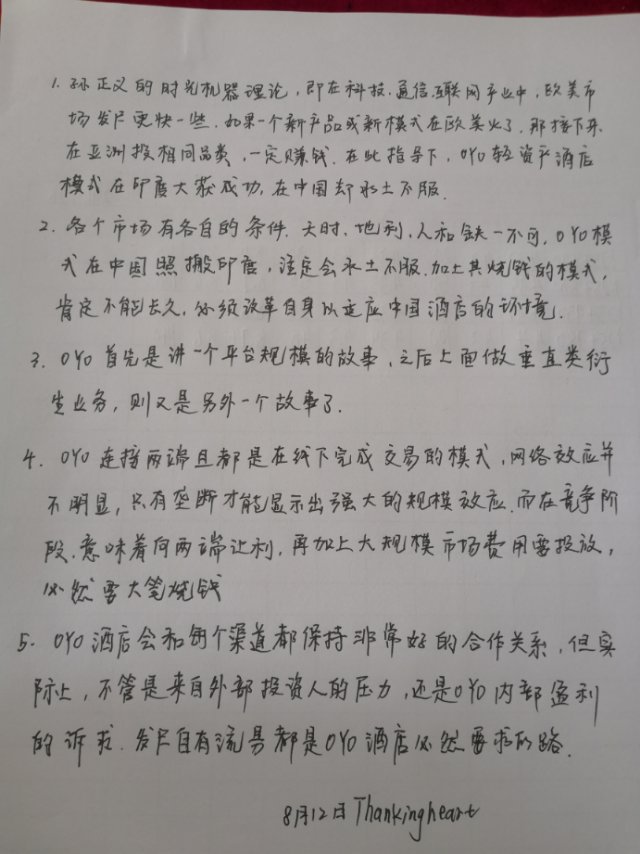 1. 孙正义的时光机器理论，即在科技、通信、互联网产业中，欧美市
场发展更快一些。如果一个新产品或新模式在欧美火了，那接下来
在亚洲投相同品类，一定赚钱。在此指导下，OYO轻资产酒店
模式在印度大获成功，在中国却水土不服。
2. 各个市场有各自的条件。天时、地利、人和缺一不可，OYO模
式在中国照搬印度，注定会水土不服。加上其烧钱的模式，
肯定不能长久，必须改革自身以适应中国酒店的环境。
3. OYO首先是讲一个平台规模的故事，之后上面做垂直类衍
生业务，则又是另外一个故事了。
4. OYO连接两端且都是在线下完成交易的模式，网络效应并
不明显，只有垄断才能显示出强大的规模效应。而在竞争阶
段，意味着向两端让利，再加上大规模市场费用要投放，
必然要大笔烧钱
5. OYO酒店会和每个渠道都保持非常好的合作关系，但实
际上，不管是来自外部投资人的压力，还是OYO内部盈利
的诉求，发展自有流量都是OYO酒店必然要求的路。
8月12日Thankingheart